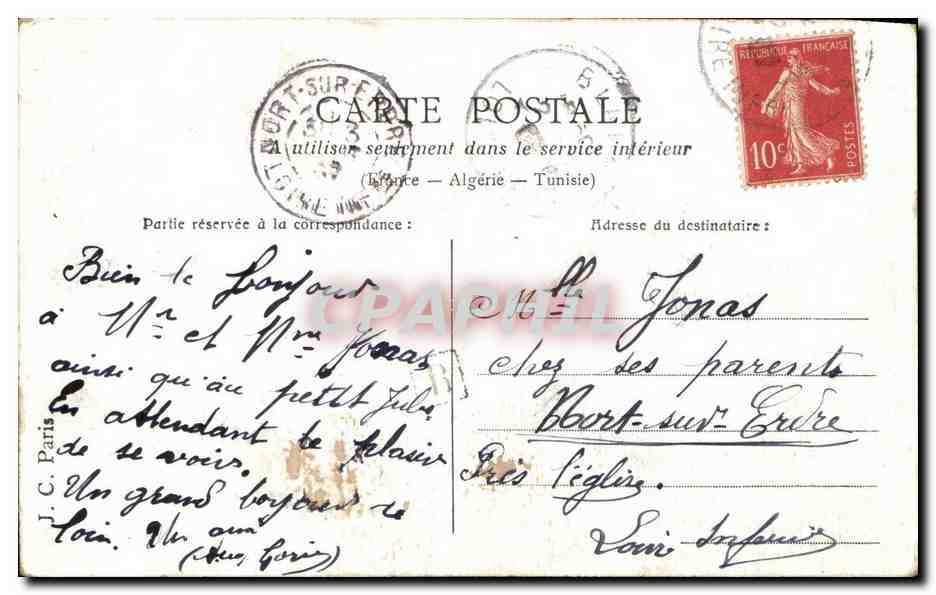 CARTE POSTALE
A utiliser seulement dans le service intérieur
(France — Algérie — Tunisie)
RÉPUBLIQUE FRANÇAISE
10c POSTES
NORT-SUR-ERDRE
LOIRE INF
Partie réservée à la correspondance :
Bien le bonjour
à Mr et Mme Jonas
ainsi qu'au petit Jules
En attendant le plasir
de se voir.
Un grand bonjour de
loin. Un ami
J. C. Paris
Adresse du destinataire :
Mlle Jonas
chez ses parents
Nort-sur-Erdre
Près l'église.
Loire Inférieure
CPAPHIL